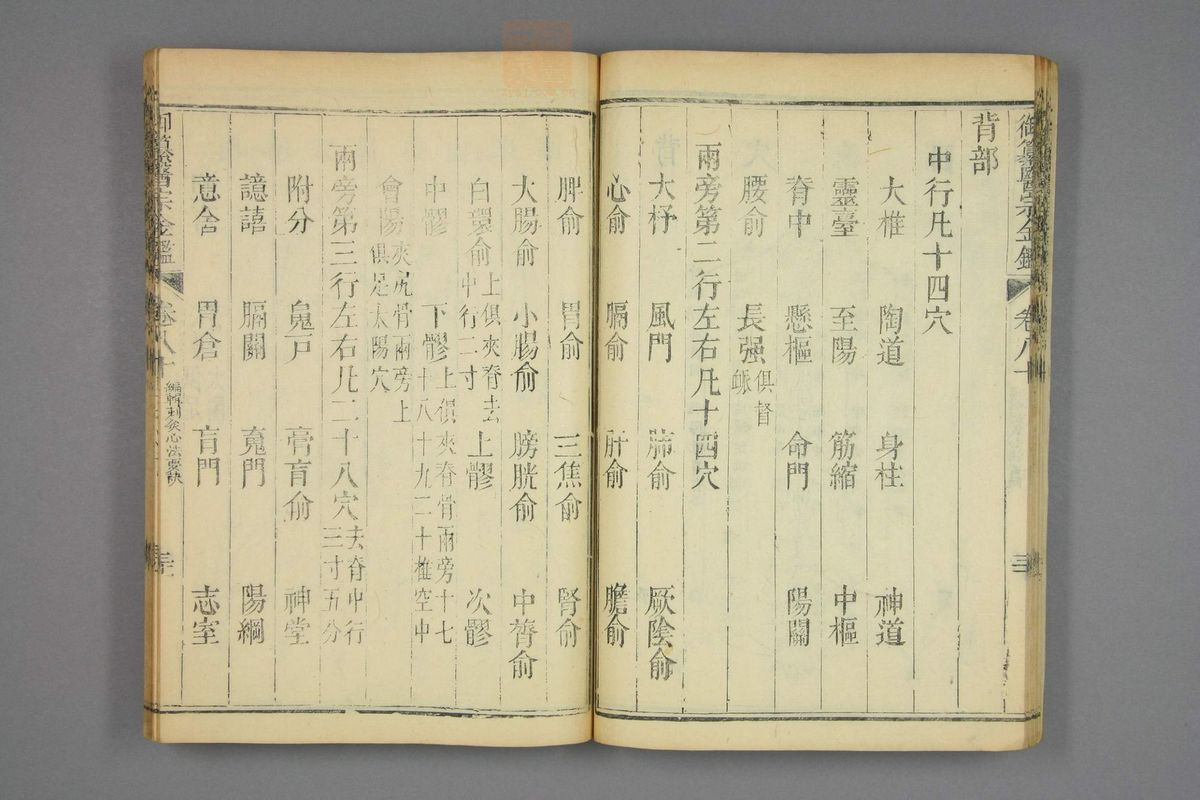 御纂醫宗金鑑 卷八十
背部
中行凡十四穴
大椎 陶道 身柱 神道
靈臺 至陽 筋縮 中樞
脊中 懸樞 命門 陽關
腰俞 長强 俱督脈
兩旁第二行左右凡十四穴
大杼 風門 肺俞 厥陰俞
心俞 膈俞 肝俞 膽俞
脾俞 胃俞 三焦俞 腎俞
大腸俞 小腸俞 膀胱俞 中膂俞
白環俞 上俱夾脊去中行二寸 上髎 次髎
中髎 下髎 上俱夾脊骨兩旁十七十八十九二十椎空中
會陽 夾尻骨兩旁上俱足太陽穴
兩旁第三行左右凡二十八穴 去脊中行三寸五分
附分 魄戸 膏肓俞 神堂
譩譆 膈關 魂門 陽綱
意舍 胃倉 肓門 志室
御纂醫宗金鑑 卷八十 編輯刺灸心法要訣